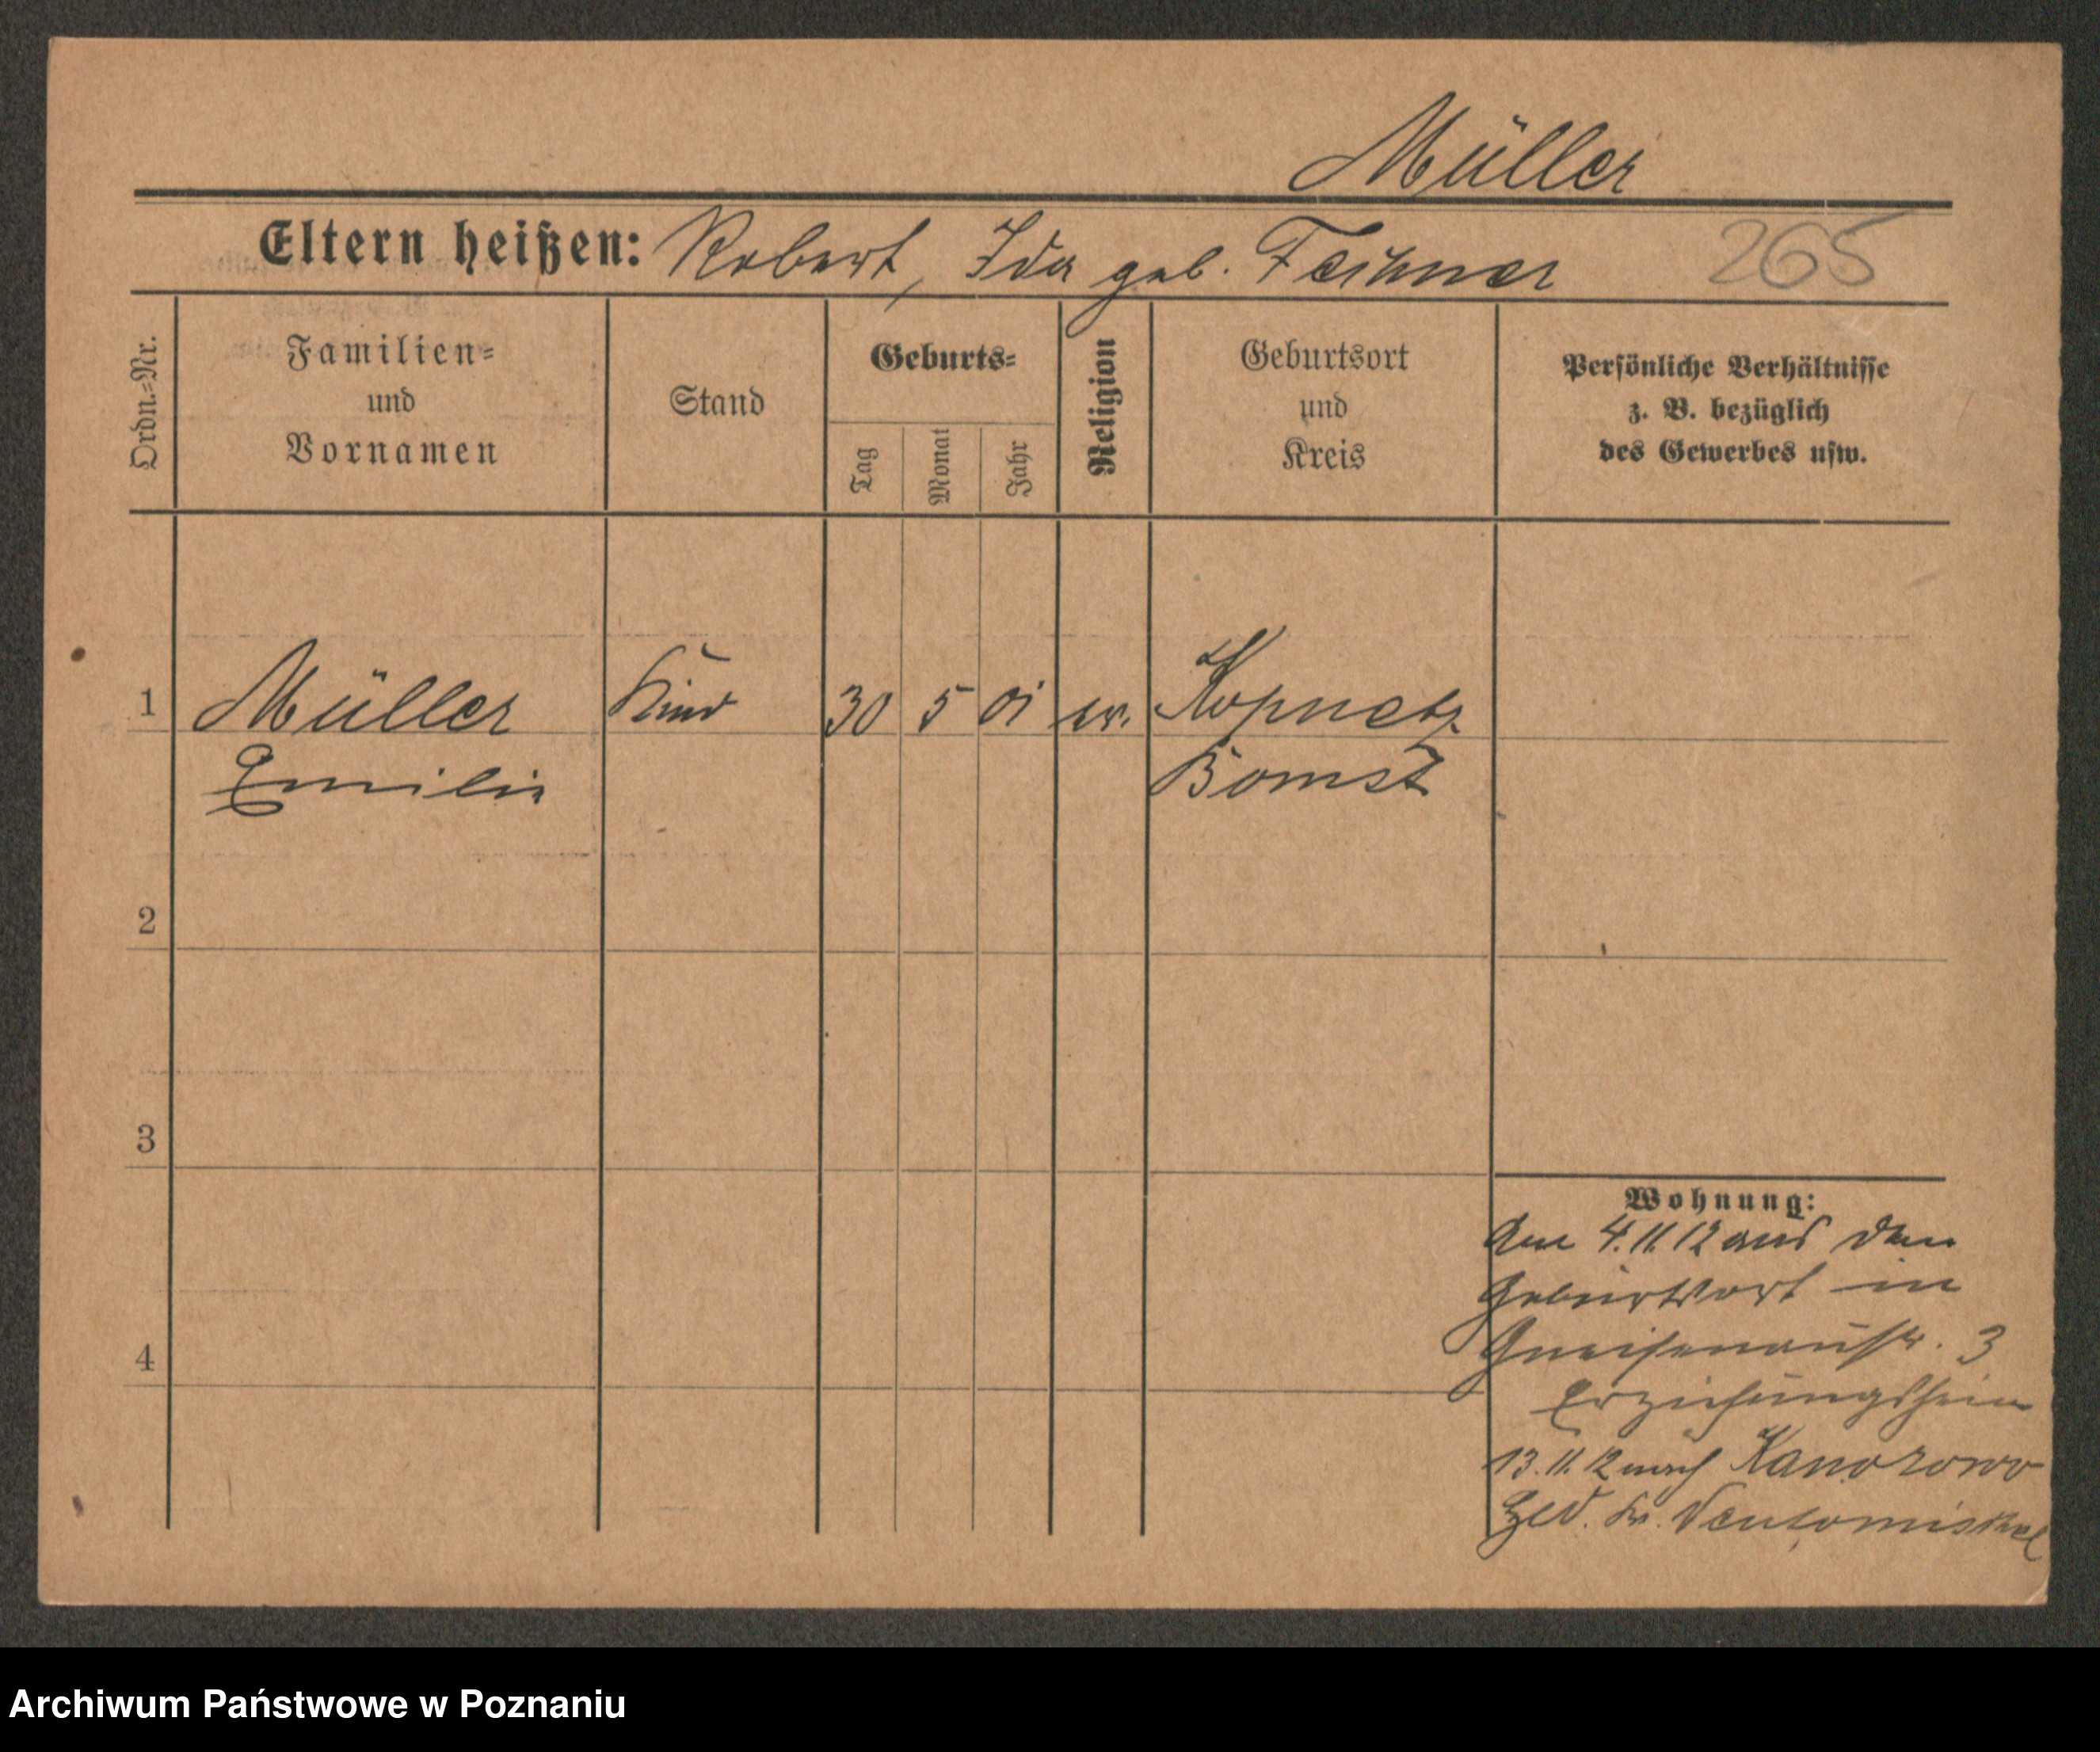 Müller
Eltern heißen: Robert, Ida geb. Feihner 265
Ordn.=Nr.
Familien=
und
Vornamen
Stand
Geburts=
Tag
Monat
Jahr
Religion
Geburtsort
und
Kreis
Persönliche Verhältnisse
z. B. bezüglich
des Gewerbes usw.
1 Müller Kind 30 5 01 ev. Kopnetz
Emilie Bomst
2
3
4
Wohnung:
Am 4.11.12 aus dem
Geburtsort in
Gneisenaustr. 3
Erziehungsheim
13.11.12 nach
Kr. Neutomischel
Archiwum Państwowe w Poznaniu